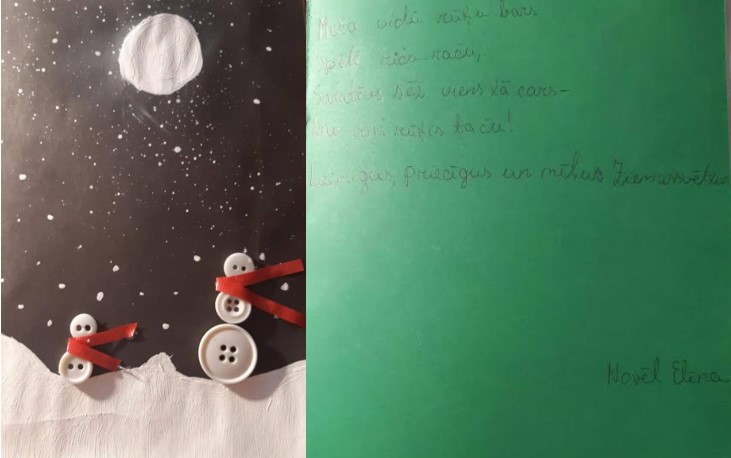 Meža vidū rūķu bars
Spēlē riču raču,
Salatēvs sēž viens kā cars-
rūķis taču!
Laimīgus, priecīgus un mīļus Ziemassvētkus
Novēl Elīna